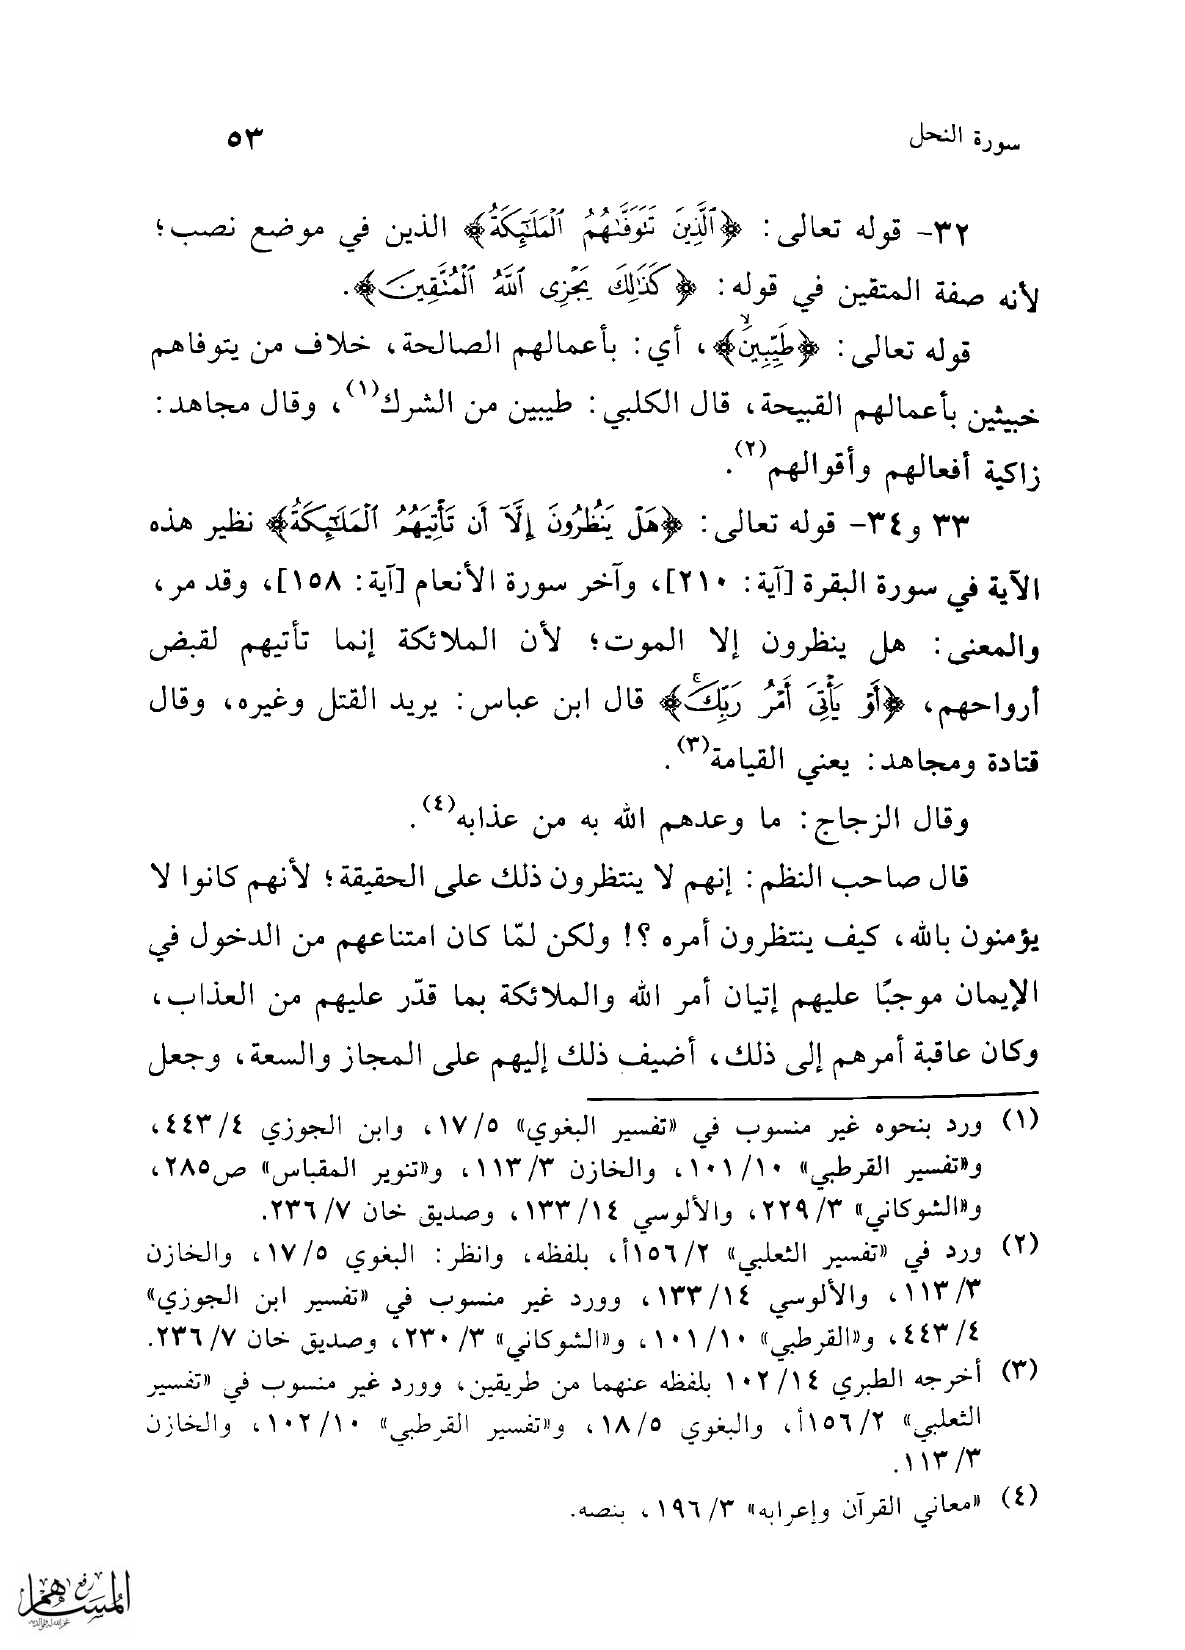 سورة النحل ٥٣
٣٢- قوله تعالى: ﴿ٱلَّذِينَ تَتَوَفَّىٰهُمُ ٱلْمَلَـٰٓئِكَةُ﴾ الذين في موضع نصب؛
لأنه صفة المتقين في قوله: ﴿كَذَٰلِكَ يَجْزِى ٱللَّهُ ٱلْمُتَّقِينَ﴾.
قوله تعالى: ﴿طَيِّبِينَ ۙ﴾، أي: بأعمالهم الصالحة، خلاف من يتوفاهم
خبيثين بأعمالهم القبيحة، قال الكلبي: طيبين من الشرك(١)، وقال مجاهد:
زاكية أفعالهم وأقوالهم(٢).
٣٣ و٣٤- قوله تعالى: ﴿هَلْ يَنظُرُونَ إِلَّآ أَن تَأْتِيَهُمُ ٱلْمَلَـٰٓئِكَةُ﴾ نظير هذه
الآية في سورة البقرة [آية: ٢١٠]، وآخر سورة الأنعام [آية: ١٥٨]، وقد مر،
والمعنى: هل ينظرون إلا الموت؛ لأن الملائكة إنما تأتيهم لقبض
أرواحهم، ﴿أَوْ يَأْتِىَ أَمْرُ رَبِّكَ ۚ﴾ قال ابن عباس: يريد القتل وغيره، وقال
قتادة ومجاهد: يعني القيامة(٣).
وقال الزجاج: ما وعدهم الله به من عذابه(٤).
قال صاحب النظم: إنهم لا ينتظرون ذلك على الحقيقة؛ لأنهم كانوا لا
يؤمنون بالله، كيف ينتظرون أمره ؟! ولكن لمّا كان امتناعهم من الدخول في
الإيمان موجبًا عليهم إتيان أمر الله والملائكة بما قدّر عليهم من العذاب،
وكان عاقبة أمرهم إلى ذلك، أضيف ذلك إليهم على المجاز والسعة، وجعل
(١) ورد بنحوه غير منسوب في «تفسير البغوي» ٥/ ١٧، وابن الجوزي ٤/ ٤٤٣،
و«تفسير القرطبي» ١٠/ ١٠١، والخازن ٣/ ١١٣، و«تنوير المقباس» ص٢٨٥،
و«الشوكاني» ٣/ ٢٢٩، والألوسي ١٤/ ١٣٣، وصديق خان ٧/ ٢٣٦.
(٢) ورد في «تفسير الثعلبي» ٢/ ١٥٦أ، بلفظه، وانظر: البغوي ٥/ ١٧، والخازن
٣/ ١١٣، والألوسي ١٤/ ١٣٣، وورد غير منسوب في «تفسير ابن الجوزي»
٤/ ٤٤٣، و«القرطبي» ١٠/ ١٠١، و«الشوكاني» ٣/ ٢٣٠، وصديق خان ٧/ ٢٣٦.
(٣) أخرجه الطبري ١٤/ ١٠٢ بلفظه عنهما من طريقين، وورد غير منسوب في «تفسير
الثعلبي» ٢/ ١٥٦أ، والبغوي ٥/ ١٨، و«تفسير القرطبي» ١٠/ ١٠٢، والخازن
٣/ ١١٣.
(٤) «معاني القرآن وإعرابه» ٣/ ١٩٦، بنصه.
رفع
المساهم